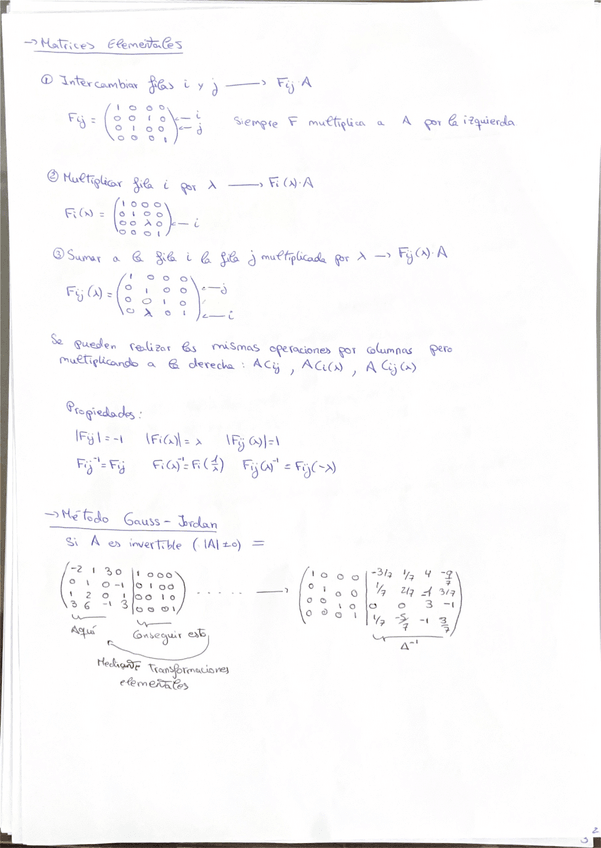 → Matrices Elementales
① Intercambiar filas i y j → Fij A
Fij = (1 0 0 0
0 0 1 0 ← i
0 1 0 0 ← j
0 0 0 1)
Siempre F multiplica a A por la izquierda
② Multiplicar fila i por λ → Fi(λ)·A
Fi(λ) = (1 0 0 0
0 1 0 0
0 0 λ 0 ← i
0 0 0 1)
③ Sumar a la fila i la fila j multiplicada por λ → Fij(λ)·A
Fij(λ) = (1 0 0 0
0 1 0 0 ← j
0 0 1 0
0 λ 0 1) ← i
Se pueden realizar las mismas operaciones por columnas pero
multiplicando a la derecha: A Cij, A Ci(λ), A Cij(λ)
Propiedades:
|Fij| = -1 |Fi(λ)| = λ |Fij(λ)| = 1
Fij⁻¹ = Fij Fi(λ)⁻¹ = Fi(1/λ) Fij(λ)⁻¹ = Fij(-λ)
→ Método Gauss-Jordan
Si A es invertible (|A| ≠ 0) =
(-2 1 3 0 | 1 0 0 0
0 1 0 -1 | 0 1 0 0
1 2 0 1 | 0 0 1 0
3 6 -1 3 | 0 0 0 1)
..... →
(1 0 0 0 | -3/7 1/7 4 -9/7
0 1 0 0 | 1/7 2/7 -1 3/7
0 0 1 0 | 0 0 3 -1
0 0 0 1 | 1/7 -5/7 -1 3/7)
Aquí
Conseguir esto
A⁻¹
Mediante transformaciones
elementales
2